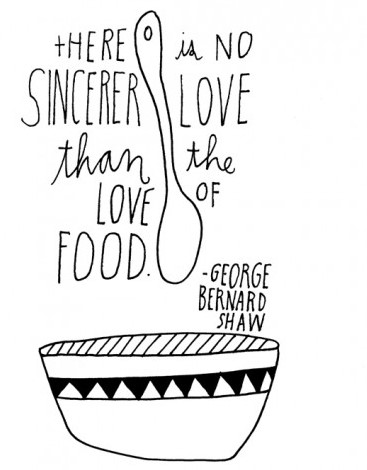 tHERE is NO
SINCERER LOVE
than the
LOVE OF
FOOD.
-GEORGE
BERNARD
SHAW